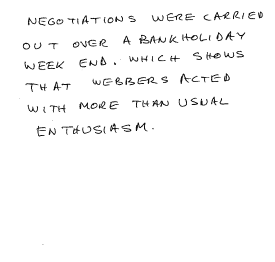 NEGOTIATIONS WERE CARRIED
OUT OVER A BANKHOLIDAY
WEEK END. WHICH SHOWS
THAT WEBBERS ACTED
WITH MORE THAN USUAL
ENTHUSIASM.